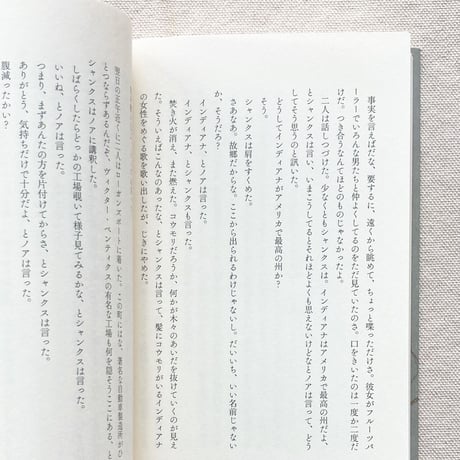 事実を言えばだな、要するに、遠くから眺めて、ちょっと喋っただけさ。彼女がフルーツパ
ーラーでいろんな男たちと仲よくしてるのをただ見ていたのさ。口をきいたのは一度か二度だ
けだ。つき合うなんてほどのものじゃなかったよ。
二人は話しつづけた。少なくともシャンクスは。インディアナはアメリカで最高の州だよ、
とシャンクスは言い、いまこうしてるとそれほどよくも思えないけどなとノアは言って、どう
してそう思うのと訊いた。
どうしてインディアナがアメリカで最高の州か？
そう。
シャンクスは肩をすくめた。
さあなあ。故郷だからな。ここから出られるわけじゃないし。だいいち、いい名前じゃない
か、そうだろ？
インディアナ、とノアは言った。
インディアナ、とシャンクスも言った。
焚き火が消え、また燃えた。コウモリだろうか、何かが木々のあいだを抜けていくのが見え
た。そういえばこんなのあったな、とシャンクスは言って、髪にコウモリがいるインディアナ
の女性をめぐる歌を歌い出したが、じきにやめた。
翌日の正午近くに二人はローガンズポートに着いた。この町にはな、著名な自動車製造所がひ
とつならずあるんだぞ、ヴィクター・ベンティクスの有名な工場も何を隠そうここにある、と
シャンクスはノアに講釈した。
しばらくしたらどっかの工場覗いて様子見てみるかな、とシャンクスは言った。
いいね、とノアは言った。
つまり、まずあんたの方を片付けてからさ、とシャンクスは言った。
ありがとう、気持ちだけで十分だよ、とノアは言った。
腹減ったかい？